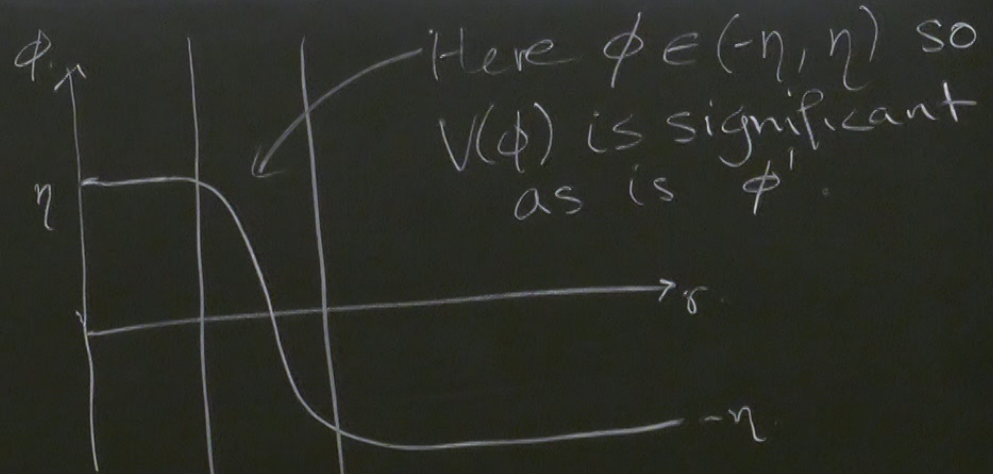 φ
Here φ ∈ (-η, η) so
V(φ) is significant
as is φ'.
η
r
-η